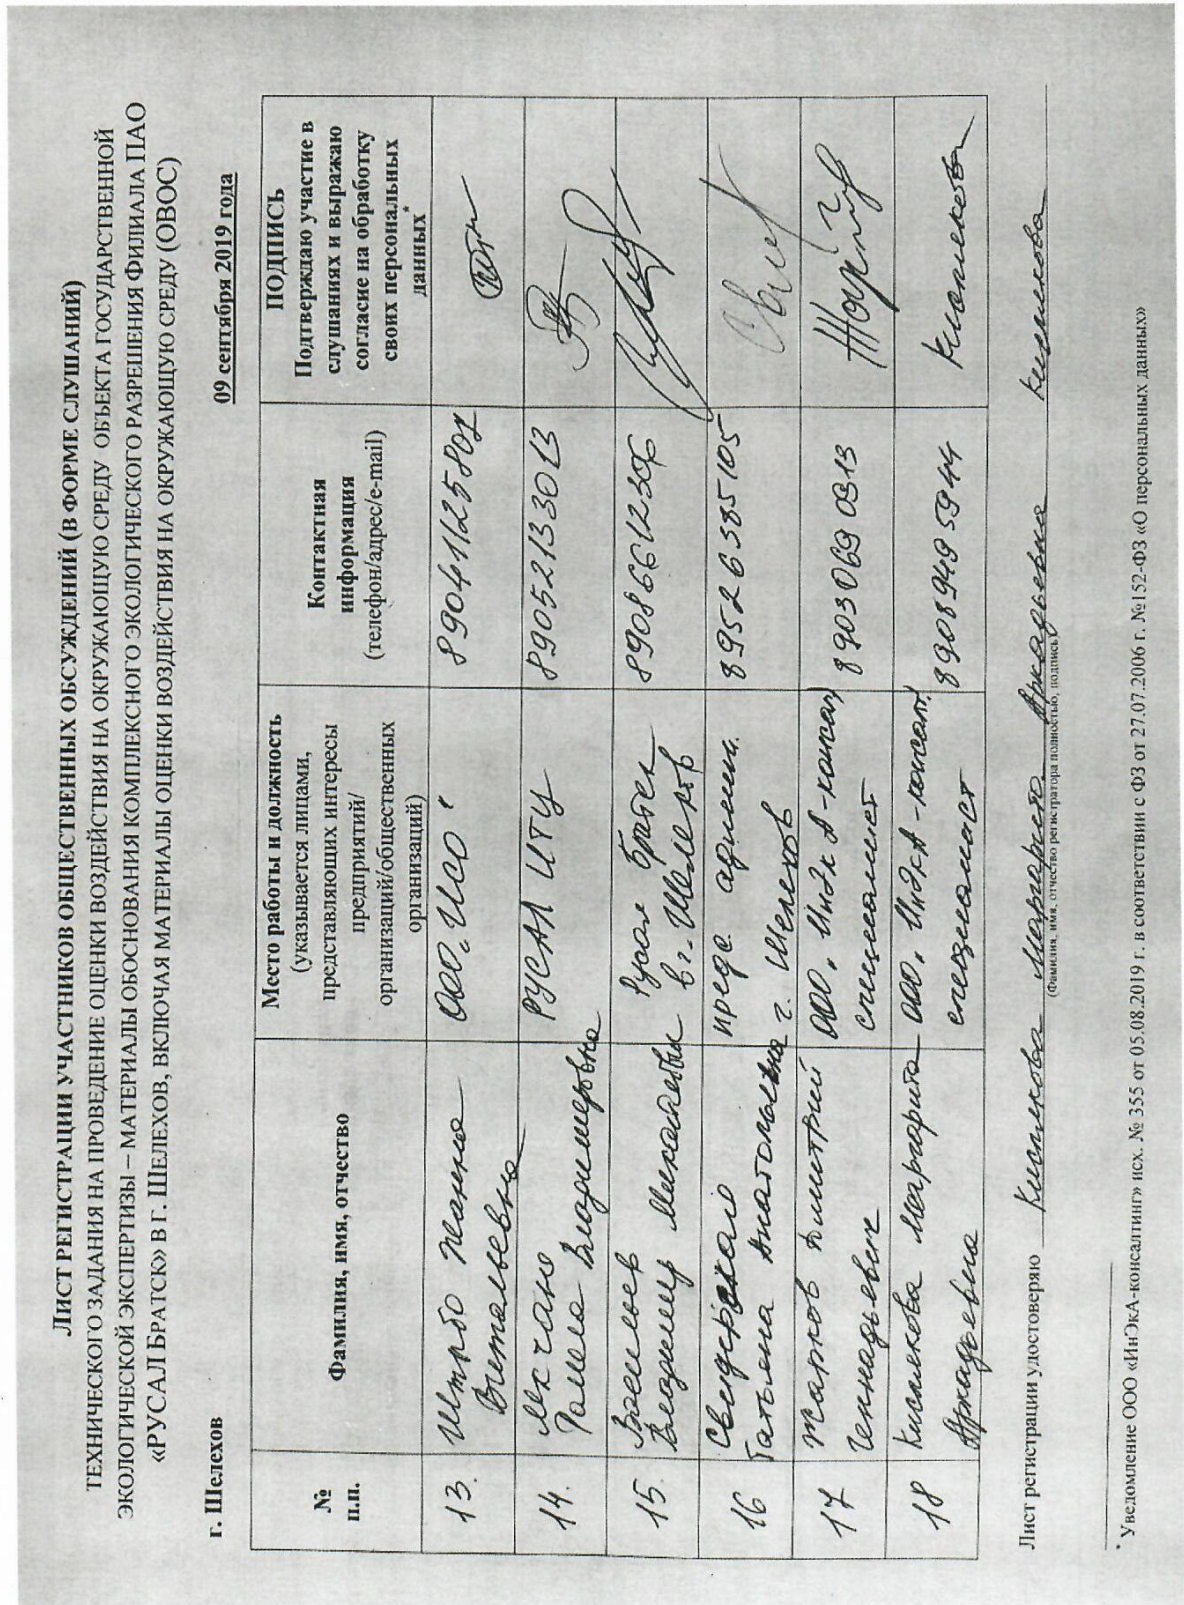 ЛИСТ РЕГИСТРАЦИИ УЧАСТНИКОВ ОБЩЕСТВЕННЫХ ОБСУЖДЕНИЙ (В ФОРМЕ СЛУШАНИЙ)
ТЕХНИЧЕСКОГО ЗАДАНИЯ НА ПРОВЕДЕНИЕ ОЦЕНКИ ВОЗДЕЙСТВИЯ НА ОКРУЖАЮЩУЮ СРЕДУ ОБЪЕКТА ГОСУДАРСТВЕННОЙ
ЭКОЛОГИЧЕСКОЙ ЭКСПЕРТИЗЫ – МАТЕРИАЛЫ ОБОСНОВАНИЯ КОМПЛЕКСНОГО ЭКОЛОГИЧЕСКОГО РАЗРЕШЕНИЯ ФИЛИАЛА ПАО
«РУСАЛ БРАТСК» В Г. ШЕЛЕХОВ, ВКЛЮЧАЯ МАТЕРИАЛЫ ОЦЕНКИ ВОЗДЕЙСТВИЯ НА ОКРУЖАЮЩУЮ СРЕДУ (ОВОС)
г. Шелехов
09 сентября 2019 года
№
п.п.
Фамилия, имя, отчество
Место работы и должность
(указывается лицами,
представляющих интересы
предприятий/
организаций/общественных
организаций)
Контактная
информация
(телефон/адрес/e-mail)
ПОДПИСЬ
Подтверждаю участие в
слушаниях и выражаю
согласие на обработку
своих персональных
данных*
13.
Жанна
Витальевна
ООО "ИСО"
14.
Владимировна
РУСАЛ ИТЦ
89052133013
15.
Васильев
Владимир
Русал Братск
в г. Шелехов
16
Татьяна Анатольевна
г. Шелехов
89526385105
17
Жарков Дмитрий
Геннадьевич
специалист
89030690313
18
Кисмекова Маргарита
Аркадьевна
специалист
89089495944
Лист регистрации удостоверяю Кисмекова Маргарита Аркадьевна
(Фамилия, имя, отчество регистратора полностью, подпись)
* Уведомление ООО «ИнЭкА-консалтинг» исх. № 355 от 05.08.2019 г. в соответствии с ФЗ от 27.07.2006 г. №152-ФЗ «О персональных данных»